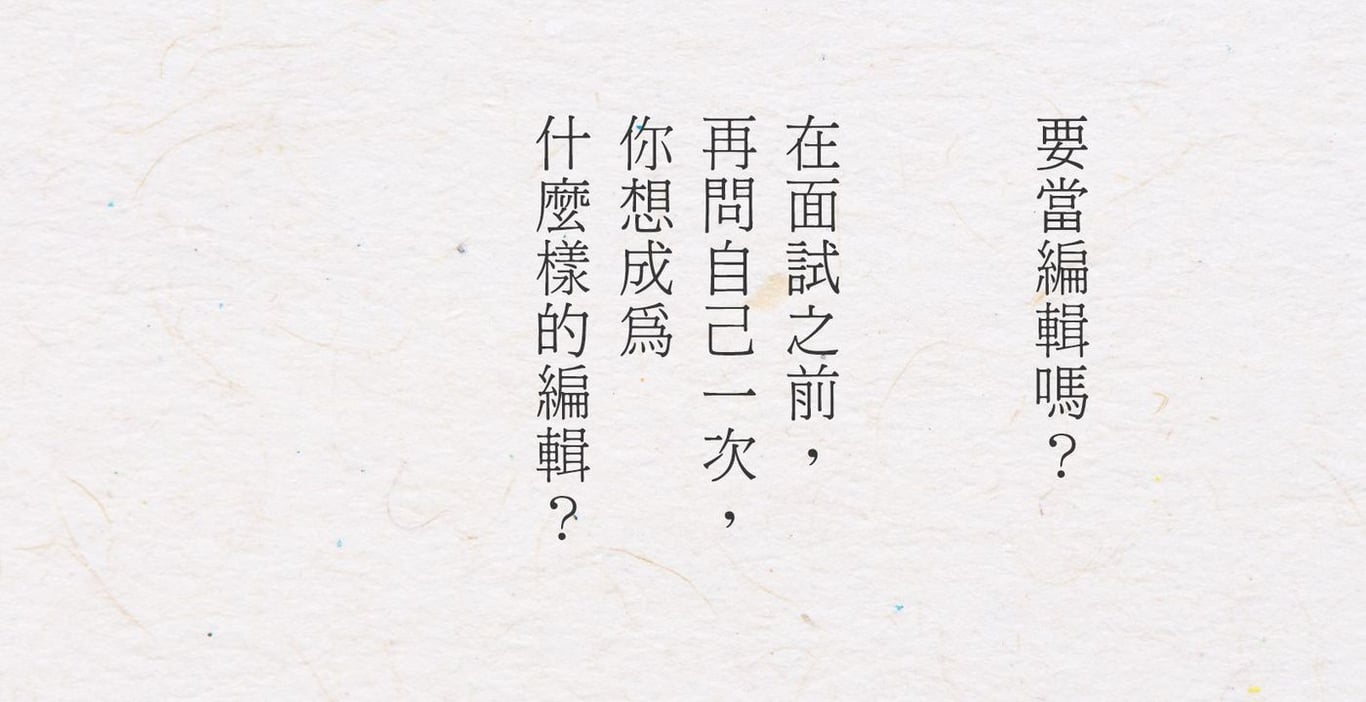 要當編輯嗎？
在面試之前，
再問自己一次，
你想成爲
什麼樣的編輯？